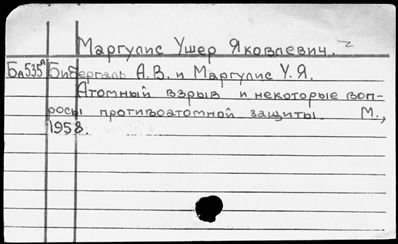 Маргулис Ушер Яковлевич.
Ба535ª Бибергаль А.В. и Маргулис У.Я.
Атомный взрыв и некоторые воп-
росы противоатомной защиты. М.,
1958.